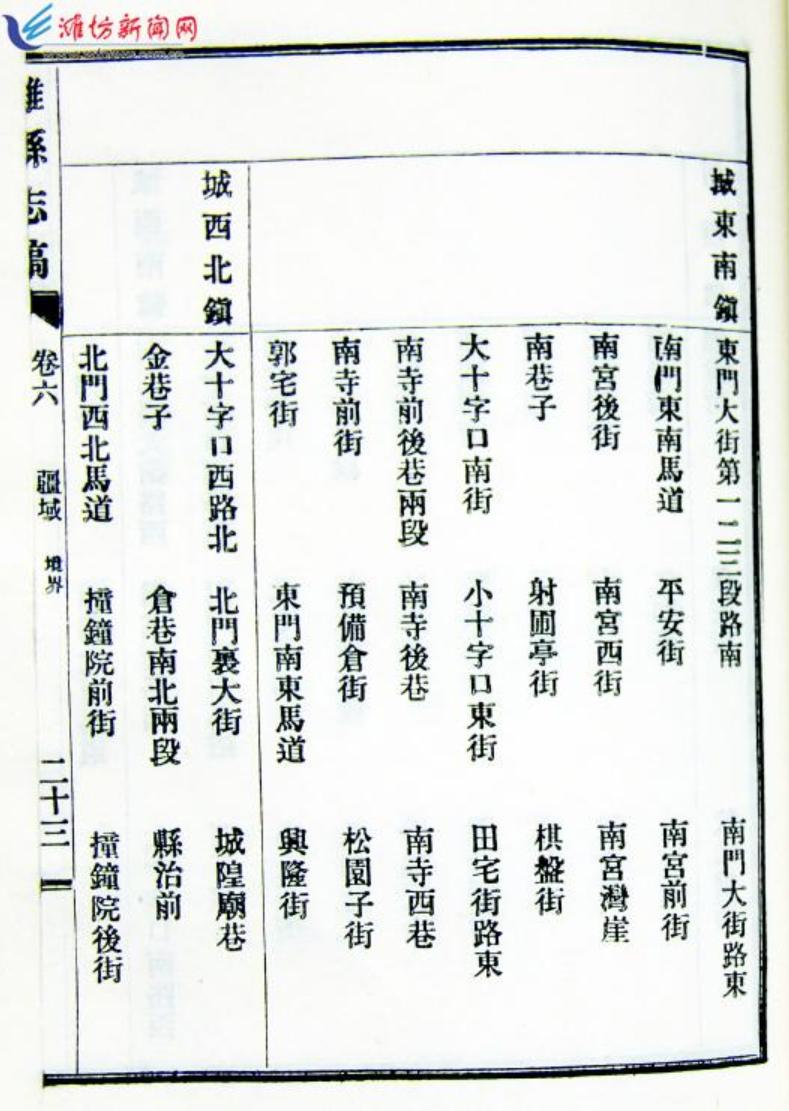 潍坊新闻网
城東南鎮
東門大街第一二三段路南
南門大街路東
南門東南馬道
平安街
南宮前街
南宮後街
南宮西街
南宮灣崖
南巷子
射圃亭街
棋盤街
大十字口南街
小十字口東街
田宅街路東
南寺前後巷兩段
南寺後巷
南寺西巷
南寺前街
預備倉街
松園子街
郭宅街
東門南東馬道
興隆街
城西北鎮
大十字口西路北
北門裏大街
城隍廟巷
金巷子
倉巷南北兩段
縣治前
北門西北馬道
撞鐘院前街
撞鐘院後街
濰縣志稿
卷六
疆域
境界
二十三